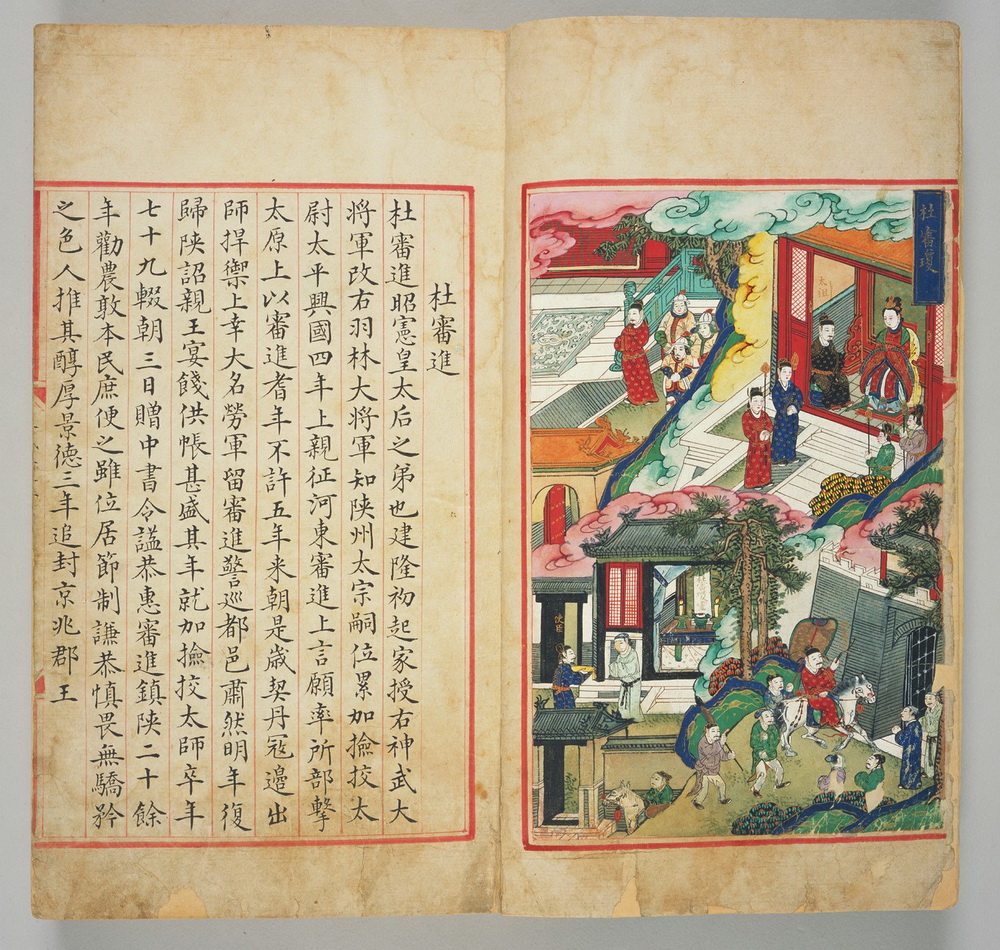 杜審瓊
太祖
杜審進
杜審進昭憲皇太后之弟也建隆初起家授右神武大
將軍改右羽林大將軍知陝州太宗嗣位累加撿挍太
尉太平興國四年上親征河東審進上言願率所部擊
太原上以審進耆年不許五年来朝是歲契丹寇邊出
師捍禦上幸大名勞軍留審進警巡都邑肅然明年復
歸陝詔親王宴餞供帳甚盛其年就加撿挍太師卒年
七十九輟朝三日贈中書令諡恭惠審進鎮陝二十餘
年勸農敦本民庶便之雖位居節制謙恭慎畏無驕矜
之色人推其醇厚景德三年追封京兆郡王